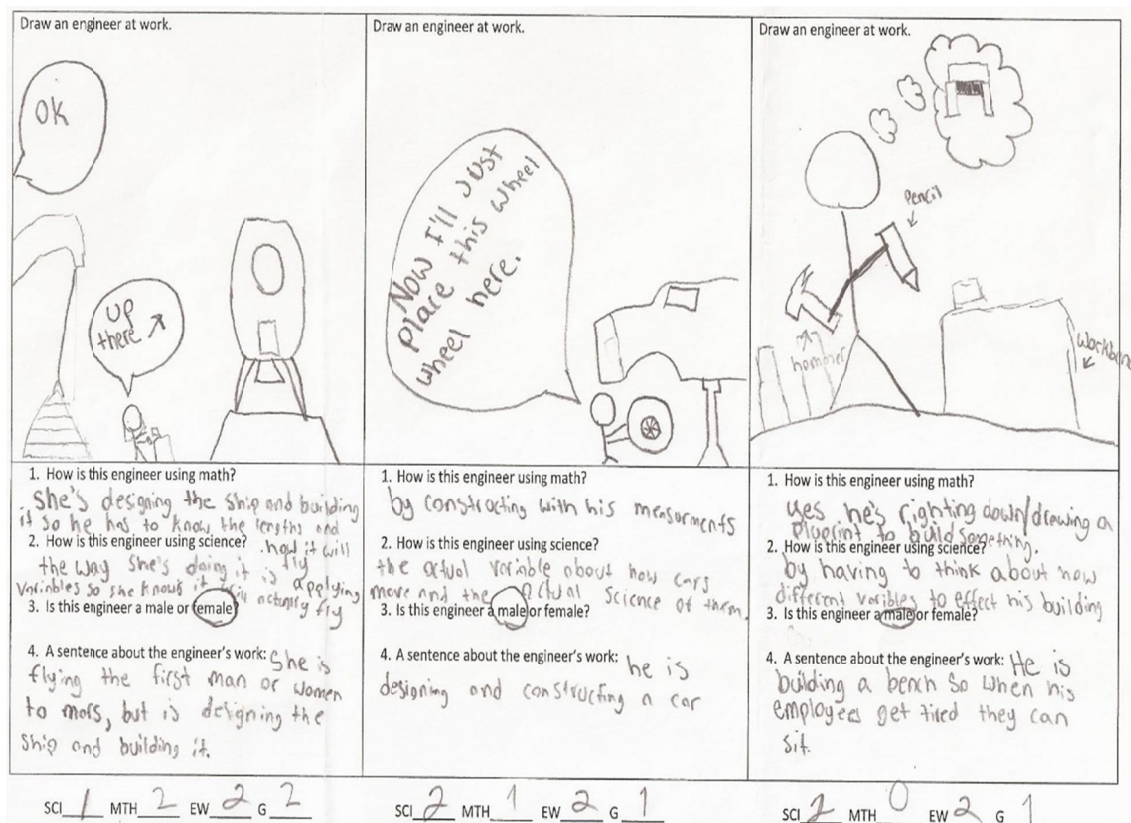 Draw an engineer at work.
OK
up
there
1. How is this engineer using math?
She's designing the ship and building
it so he has to know the lengths and
2. How is this engineer using science? .how it will
fly
the way she's doing it is applying
variables so she knows it will actually fly
3. Is this engineer a male or female?
4. A sentence about the engineer's work: She is
flying the first man or women
to mars, but is designing the
ship and building it.
SCI 1 MTH 2 EW 2 G 2
Draw an engineer at work.
Now I'll Just
place this wheel
wheel here.
1. How is this engineer using math?
by constructing with his mensurments
2. How is this engineer using science?
the actual variable about how cars
move and the actual science of them.
3. Is this engineer a male or female?
4. A sentence about the engineer's work: he is
designing and constructing a car
SCI 2 MTH 1 EW 2 G 1
Draw an engineer at work.
Pencil
hommer
workben
1. How is this engineer using math?
yes he's righting down/drawing a
pluprint to build something.
2. How is this engineer using science?
by having to think about how
different varibles to effect his building
3. Is this engineer a male or female?
4. A sentence about the engineer's work: He is
building a bench so when his
employees get tired they can
sit.
SCI 2 MTH 0 EW 2 G 1